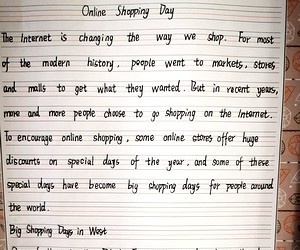 Online Shopping Day
The Internet is changing the way we shop. For most
of the modern history, people went to markets, stores
and malls to get what they wanted. But in recent years,
more and more people choose to go shopping on the Internet.
To encourage online shopping, some online stores offer huge
discounts on special days of the year, and some of these
special days have become big shopping days for people around
the world.
Big Shopping Days in West